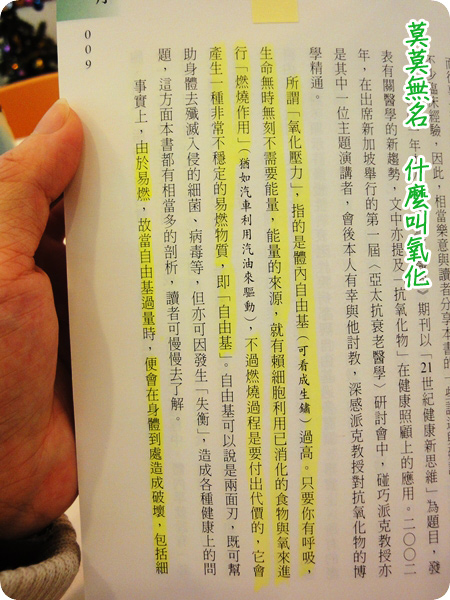 莫莫無名 什麼叫氧化
臨床經驗，因此，相當樂意與讀者分享本書的
年 期刊以「21世紀健康新思維」為題目，發
表有關醫學的新趨勢，文中亦提及「抗氧化物」在健康照顧上的應用。二〇〇二
年，在出席新加坡舉行的第一屆〈亞太抗衰老醫學〉研討會中，碰巧派克教授亦
是其中一位主題演講者，會後本人有幸與他討教，深感派克教授對抗氧化物的博
學精通。
所謂「氧化壓力」，指的是體內自由基（可看成生鏽）過高。只要你有呼吸，
生命無時無刻不需要能量，能量的來源，就有賴細胞利用已消化的食物與氧來進
行「燃燒作用」（猶如汽車利用汽油來驅動），不過燃燒過程是要付出代價的，它會
產生一種非常不穩定的易燃物質，即「自由基」。自由基可以說是兩面刃，既可幫
助身體去殲滅入侵的細菌、病毒等，但亦可因發生「失衡」，造成各種健康上的問
題，這方面本書都有相當多的剖析，讀者可慢慢去了解。
事實上，由於易燃，故當自由基過量時，便會在身體到處造成破壞，包括細
009